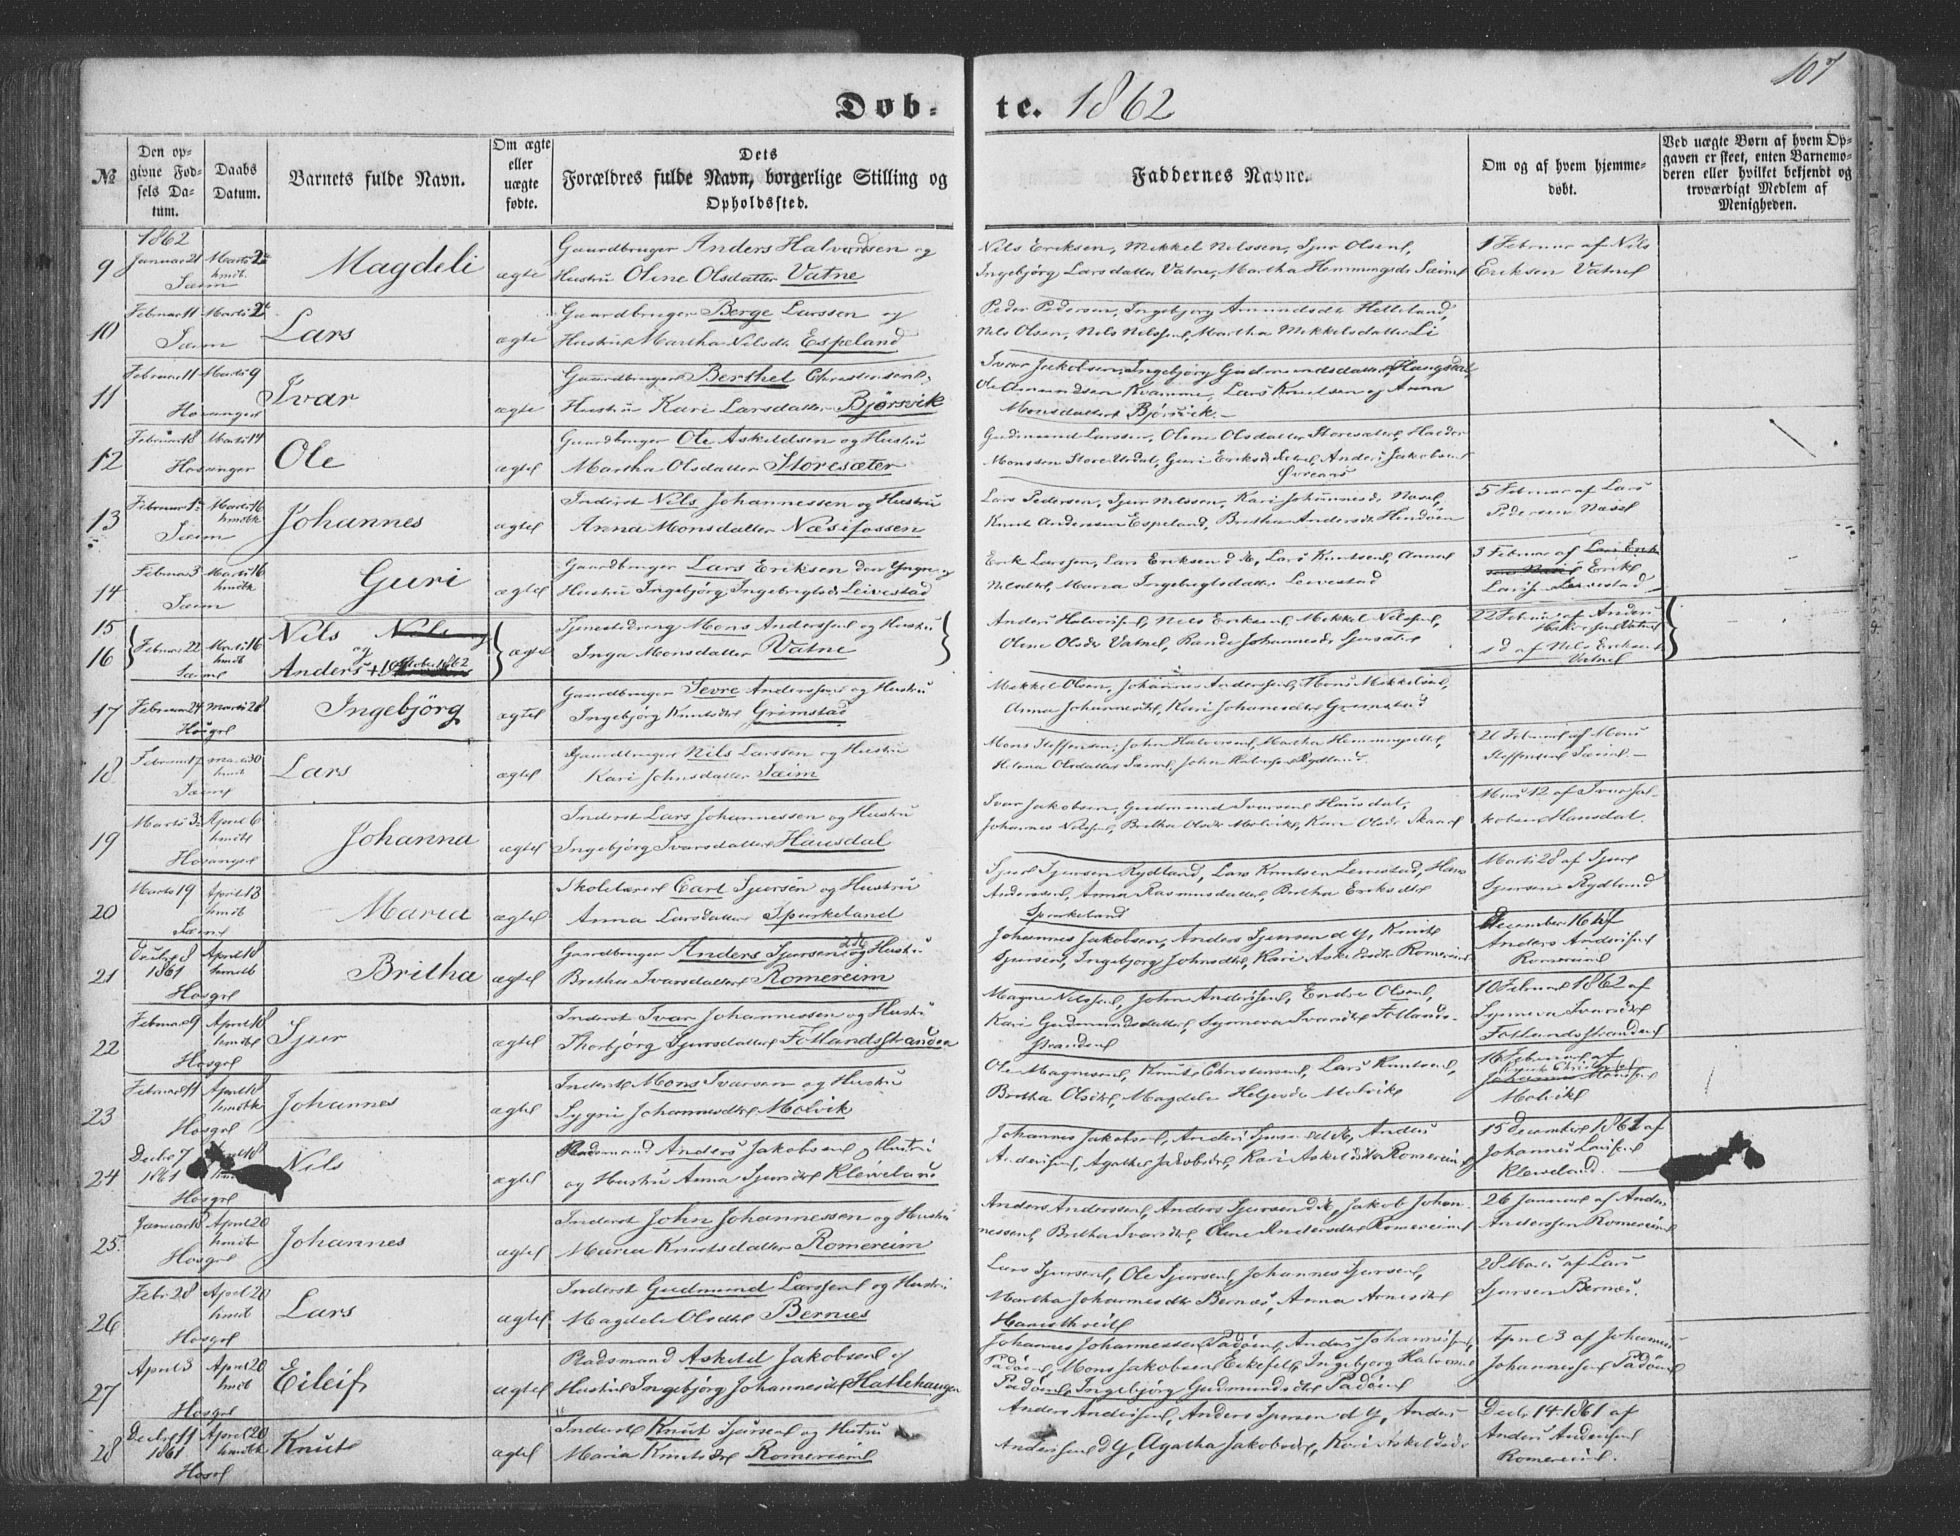 107
Døb-
te. 1862
№
Den op-
givne Fød-
sels Da-
tum.
Daabs
Datum.
Barnets fulde Navn.
Om ægte
eller
uægte
fødte.
Dets
Forældres fulde Navn, borgerlige Stilling og
Opholdssted.
Faddernes Navne.
Om og af hvem hjemme-
døbt.
Ved uægte Børn af hvem Op-
gaven er skeet, enten Barnemo-
deren eller hvilket bekjendt og
troværdigt Medlem af
Menigheden.
1862
9 Januar 21 Marts 2 Magdeli ægte Gaardbruger Anders Halvorsen og
hmdb. Sæim Hustru Olene Olsdatter Vatne
Nils Eriksen, Mikkel Nilssen, Sjur Olsen,
Ingebjørg Larsdatter Vatne, Martha Hemmingsdr Sæim
1 Februar af Nils
Eriksen Vatne
10 Februar 11 Marts 2 Lars ægte Gaardbruger Berge Larssen og
Sæim Hustru Martha Nilsdr Espeland
Peder Pedersen, Ingebjørg Amundsdr Helleland,
Nils Olsen, Nils Nilssen, Martha Mikkelsdatter Li
11 Februar 11 Marts 9 Ivar ægte Gaardbruger Berthel Christensen,
Hosanger Hustru Kari Larsdatter Bjørsvik
Ivar Jakobsen, Ingebjørg Gudmundsdatter Haugsdal,
Ole Amundsen Kvamme, Lars Knudsen og Anna
Monsdatter Bjørsvik.
12 Februar 8 Marts 14 Ole ægte Gaardbruger Ole Askildsen og Hustru
Hosanger Martha Olsdatter Storesæter
Gudmund Larssen, Olene Olsdatter Storesæter, Haldor
Monssen Store Urdal, Guri Eriksdr, Anders Jakobsen
Øvreaas
13 Februar 1 Marts 16 Johannes ægte Inderst Nils Johannessen og Hustru
hmdb Sæim Anna Monsdatter Næsifossen
Lars Pedersen, Sjur Nilssen, Kari Johannesdr Nasse,
Knut Andersen Espeland, Britha Andersdr Hindøen
5 Februar af Lars
Pedersen Nasse
14 Februar 3 Marts 16 Guri ægte Gaardbruger Lars Eriksen den Yngre og
hmdb Sæim Hustru Ingebjørg Ingebrigtsdr Leivestad
Erik Larssen, Lars Eriksen d Æ, Lars Knutsen, Anna
Nilsdtr, Maria Ingebrigtsdatter Leivestad
3 Februar af Lars Erik
Erik
Larss. Leivestad
15
16 Februar 22 Marts 16 Nils og
hmdb Sæim Anders + 10 October 1862
ægte Tjenestedreng Mons Anderssen og Hustru
Inga Monsdatter Vatne
Anders Halvorsen, Nils Eriksen, Mikkel Nilssen,
Olene Olsdr Vatne, Rande Johannesdr Sjursæter
22 Februar af Anders
Halvorsen Vatne
s d af Nils Eriksen
Vatne
17 Februar 24 Marts 28 Ingebjörg ægte Gaardbruger Sevre Anderssen og Hustru
Hosgr Ingebjørg Knutsdtr Grimstad
Mikkel Olsen, Johannes Anderssen, Mons Mikkelsen,
Anna Johannesdtr, Kari Johannesdtr Grimstad
18 Februar 17 Marts 30 Lars ægte Gaardbruger Nils Larssen og Hustru
hmdb Sæim Kari Johnsdatter Sæim
Mons Steffensen, John Halvorsen, Martha Hemmingsdtr,
Helena Olsdatter Sæim, John Halvorsen Rydland
20 Februar af Mons
Steffensen Sæim
19 Marts 3 April 6 Johanna ægte Inderst Lars Johannessen og Hustru
hmdb Hosanger Ingebjørg Ivarsdatter Hausdal
Ivar Jakobsen, Gudmund Ivarsen Hausdal,
Johannes Nilssen, Britha Olsdr Molvik, Kari Olsdr Skaar
Mars 12 af Ivar Ja-
kobsen Hausdal.
20 Marts 19 April 13 Maria ægte Skolelærer Carl Sjursen og Hustru
hmdb Sæim Anna Larsdatter Spurkeland
Sjur Sjursen Rydland, Lars Knutsen Leivestad, Hans
Andersen, Anna Rasmusdatter, Britha Eriksdtr
Spurkeland
Marts 28 af Sjur
Sjursen Rydland
21 Decbr 8 1861 April 18 Britha ægte Gaardbruger Anders Sjursen d Æ og Hustru
hmdb Hosgr Britha Ivarsdatter Romereim
Johannes Jakobsen, Anders Sjursen d Y, Knut
Sjursen, Ingebjørg Johnsdtr, Kari Askildsdtr Romereim
December 16 af
Anders Andersen
Romereim
22 Februar 9 April 18 Sjur ægte Inderst Ivar Johannessen og Hustru
hmdb Hosgr Thorbjörg Sjursdatter Fotlandsstranden
Magne Nilssen, John Anderssen, Endre Olsen,
Kari Gudmundsdatter, Synneva Ivarsdtr Fotlands-
stranden
10 Februar 1862 af
Synneva Ivarsdtr
Fotlandsstranden
23 Februar 11 April 18 Johannes ægte Inderst Mons Ivarsen og Hustru
hmdb Hosgr Sygni Johannesdtr Molvik
Ole Magnesen, Knut Christensen, Lars Knutsen,
Britha Olsdtr, Magdele Heljesdr Molvik
16 Februar af
Knut Christensen
Johannes Monssen
Molvik
24 Decbr 7 1861 April 18 Nils ægte Raadsmand Anders Jakobsen og Hustru
Hosgr og Hustru Anna Sjursdtr Kleiveland
Johannes Jakobsen, Anders Sjursen d Æ, Anders
Andersen, Agatha Jakobsdtr, Kari Askildsdtr Romereim
15 December 1861 af
Johannes Larssen
Kleiveland.
25 Januar 18 April 20 Johannes ægte Inderst John Johannessen og Hustru
hmdb Hosgr Maria Knutsdatter Romereim
Anders Anderssen, Anders Sjursen d Æ, Jakob Johan-
nessen, Britha Ivarsdtr, Olene Andersdtr Romereim
26 Januar af Anders
Anderssen Romereim
26 Febr 28 April 20 Lars ægte Inderst Gudmund Larssen og Hustru
hmdb Hosgr Magdele Olsdtr Bernæs
Lars Sjursen, Ole Sjursen, Johannes Sjursen,
Martha Johannesdtr Bernæs, Anna Arnesdtr
28 Marts af Lars
Sjursen Bernæs.
27 April 3 April 20 Eileif ægte Raadsmand Askild Jakobsen og
hmdb Hosgr Hustru Ingebjørg Johannesdtr Hatlehaugen
Johannes Johannessen Padøen, Anders Johannessen
Padøen, Mons Jakobsen Eikefet, Ingebjørg Halvorsd
Padøen, Ingebjørg Gudmundsdtr Padøen
April 3 af Johannes
Johannessen Padøen
28 Decbr 11 1861 April 20 Knut ægte Inderst Knut Sjursen og Hustru
hmdb Hosgr Maria Knutsdtr Romereim
Anders Andersen, Anders Sjursen d Y, Anders
Andersen d Y, Agatha Jakobsdtr, Kari Askildsdr
Decbr 14 1861 af
Anders Andersen
Romereim.